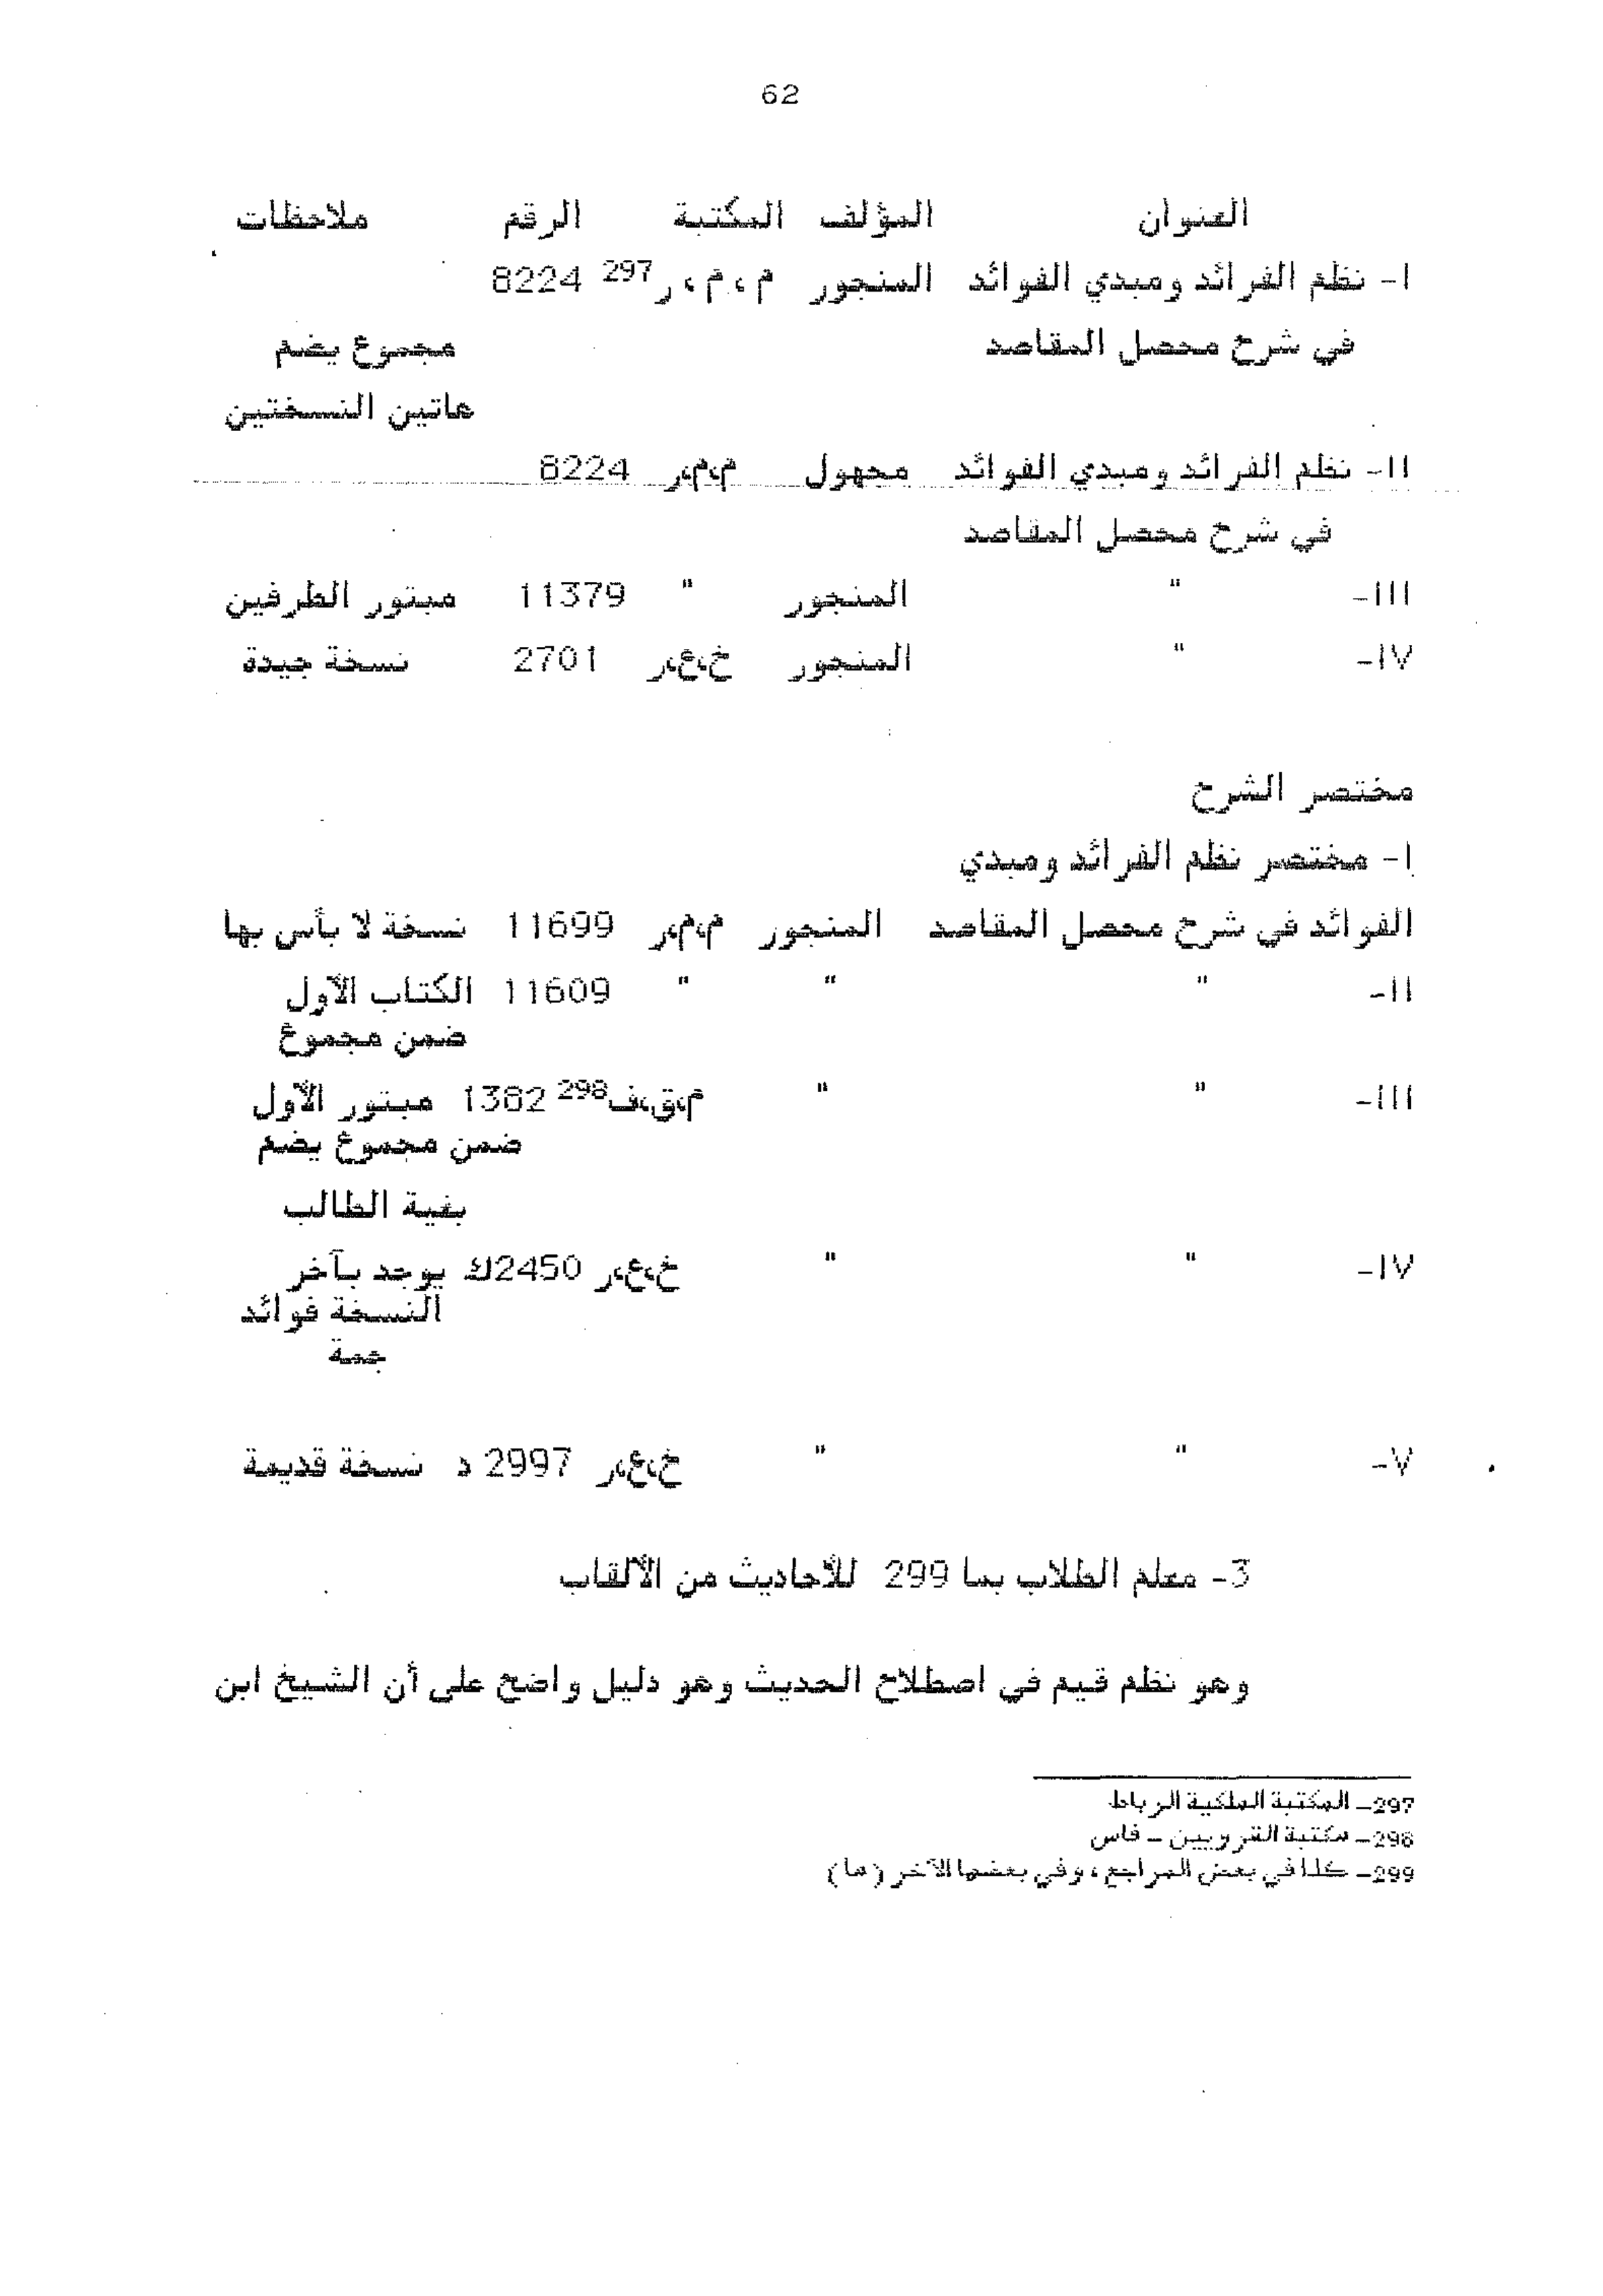 62
العنوان المؤلف المكتبة الرقم ملاحظات
I- نظم الفرائد ومبدي الفوائد المنجور م،م،ر 297 8224
في شرح محصل المقاصد مجموع يضم
هاتين النسختين
II- نظم الفرائد ومبدي الفوائد مجهول م،م،ر 8224
في شرح محصل المقاصد
III- " المنجور " 11379 مبتور الطرفين
IV- " المنجور خ،ع،ر 2701 نسخة جيدة
مختصر الشرح
I- مختصر نظم الفرائد ومبدي
الفوائد في شرح محصل المقاصد المنجور م،م،ر 11699 نسخة لا بأس بها
II- " " " 11609 الكتاب الأول
ضمن مجموع
III- " " م،ق،ف 298 1382 مبتور الأول
ضمن مجموع يضم
بغية الطالب
IV- " " خ،ع،ر 2450ك يوجد بآخر
النسخة فوائد
جمة
V- " " خ،ع،ر 2997 د نسخة قديمة
3- معلم الطلاب بما 299 للأحاديث من الألقاب
وهو نظم قيم في اصطلاح الحديث وهو دليل واضح على أن الشيخ ابن
297- المكتبة الملكية الرباط
298- مكتبة القرويين - فاس
299- كذا في بعض المراجع، وفي بعضها الآخر (ما)